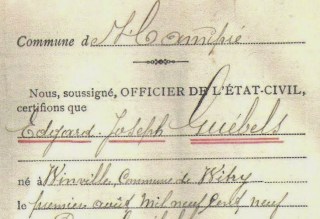 Commune de St Campré
Nous, soussigné, OFFICIER DE L'ÉTAT-CIVIL,
certifions que
Edgard-Joseph Guébels
né à Winville, Commune de Witry
le premier août Mil neuf Cent neuf